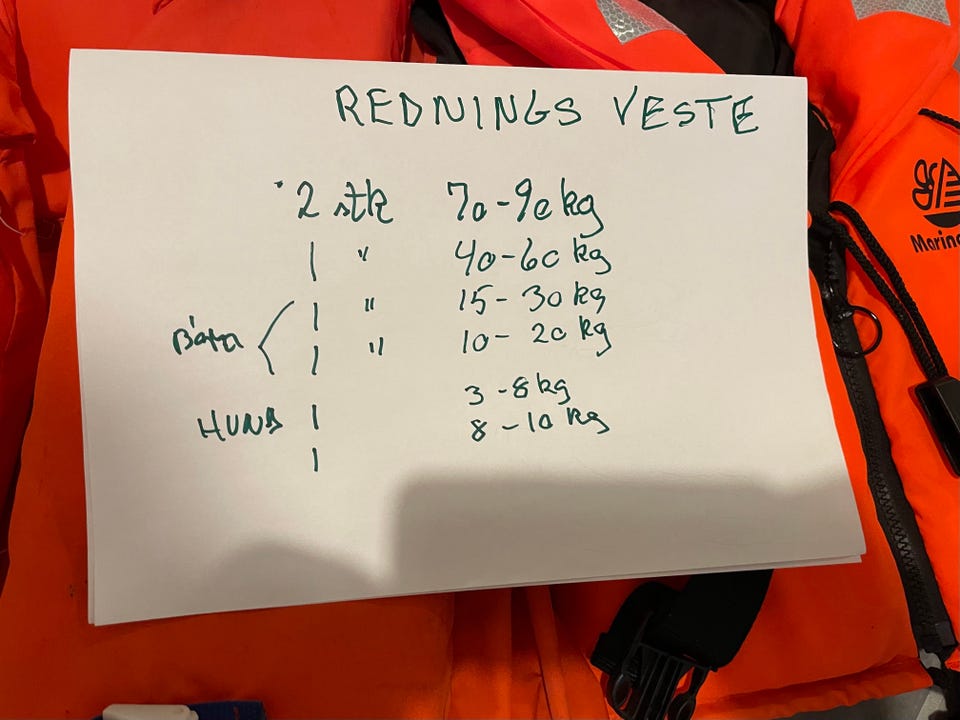 REDNINGS VESTE
2 stk 70-90 kg
1 " 40-60 kg
1 " 15-30 kg
1 " 10-20 kg
3-8 kg
HUND 1 8-10 kg
1
Marin